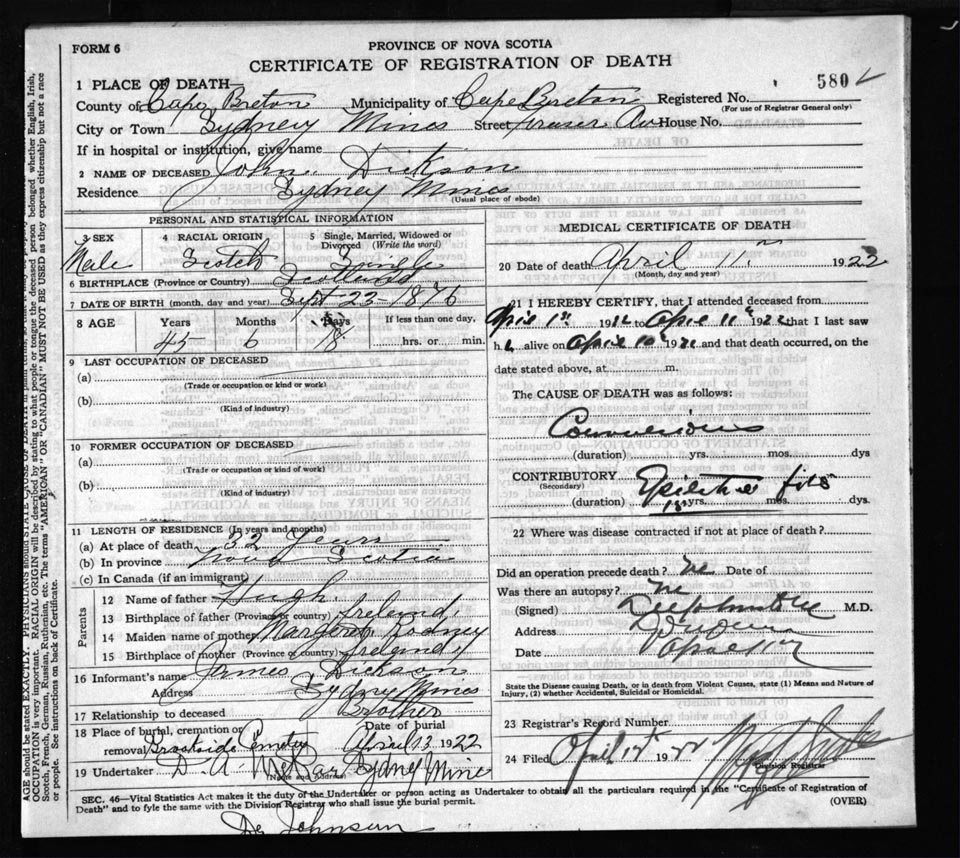 FORM 6
PROVINCE OF NOVA SCOTIA
CERTIFICATE OF REGISTRATION OF DEATH
580
1 PLACE OF DEATH—
County of Cape Breton Municipality of Cape Breton Registered No.
(For use of Registrar General only)
City or Town Sydney Mines Street Fraser Av House No.
If in hospital or institution, give name
2 NAME OF DECEASED John Dickson
Residence Sydney Mines
(Usual place of abode)
PERSONAL AND STATISTICAL INFORMATION
3 SEX Male
4 RACIAL ORIGIN Scotch
5 Single, Married, Widowed or Divorced (Write the word) Single
6 BIRTHPLACE (Province or Country) Scotland
7 DATE OF BIRTH (month, day and year) Sept 23-1876
8 AGE Years Months Days If less than one day,
45 6 18 hrs. or min.
9 LAST OCCUPATION OF DECEASED
(a)
(Trade or occupation or kind or work)
(b)
(Kind of industry)
10 FORMER OCCUPATION OF DECEASED
(a)
(Trade or occupation or kind of work)
(b)
(Kind of industry)
11 LENGTH OF RESIDENCE (In years and months)
(a) At place of death 32 years
(b) In province Nova Scotia
(c) In Canada (if an immigrant)
Parents
12 Name of father Hugh
13 Birthplace of father (Province or country) Ireland
14 Maiden name of mother Margaret Rodney
15 Birthplace of mother (Province or country) Ireland
16 Informant's name James Dickson
Address Sydney Mines
17 Relationship to deceased Brother
18 Place of burial, cremation or removal Brookside Cemetery
Date of burial April 13 1922
19 Undertaker D. A. McRae Sydney Mines
(Name and address)
MEDICAL CERTIFICATE OF DEATH
20 Date of death April 11th 1922
(Month, day and year)
21 I HEREBY CERTIFY, that I attended deceased from
April 1st 1922 to April 11th 1922 that I last saw
h alive on April 10th 1922 and that death occurred, on the
date stated above, at m.
The CAUSE OF DEATH was as follows:
Convulsions
(duration) yrs. mos. dys
CONTRIBUTORY Epileptic fits
(Secondary)
(duration) yrs. mos. dys.
22 Where was disease contracted if not at place of death?
Did an operation precede death? No Date of
Was there an autopsy? No
(Signed) M.D.
Address
Date
State the Disease causing Death, or in death from Violent Causes, state (1) Means and Nature of Injury, (2) whether Accidental, Suicidal or Homicidal.
23 Registrar's Record Number
24 Filed April 12th 1922
Division Registrar
SEC. 46—Vital Statistics Act makes it the duty of the Undertaker or person acting as Undertaker to obtain all the particulars required in the "Certificate of Registration of
Death" and to fyle the same with the Division Registrar who shall issue the burial permit.
(OVER)
Dr Johnson